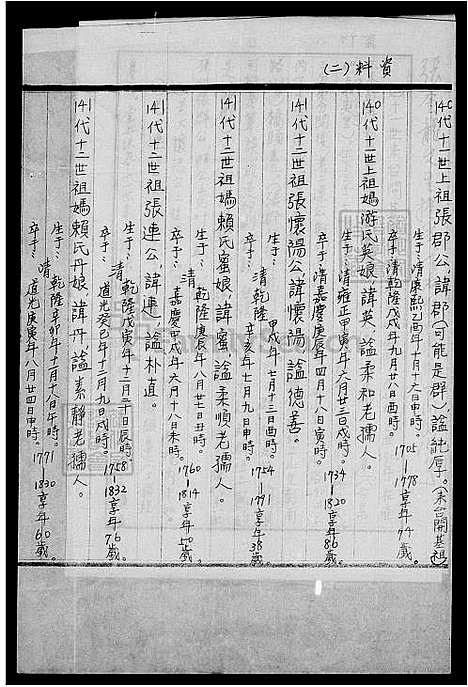 資料(二)
140代十一世上祖張郡公,諱郡(可能是群),謚純厚。(來台開基祖)
生于:清康熙乙酉年十月十六日申時。
卒于:清乾隆戊戌年九月廿八日酉時。 1705—1778 享年74歲。
140代十一世上祖媽游氏英娘,諱英,謚柔和老孺人。
生于:清雍正甲寅年六月廿三日戌時。
卒于:清嘉慶庚辰年四月十八日寅時。 1734—1820 享年86歲。
141代十二世祖張懷陽公,諱懷陽,謚德善。
生于:清乾隆甲戌年七月十三日酉時。
卒于:辛亥年七月九日申時。 1754—1791 享年38歲。
141代十二世祖媽賴氏蜜娘,諱蜜,謚柔順老孺人。
生于:清乾隆庚辰年八月廿七日丑時。
卒于:嘉慶甲戌年六月十八日未時。 1760—1814 享年50歲。
141代十二世祖張連公,諱連,謚朴直。
生于:清乾隆戊寅年十二月二十日辰時。
卒于:道光癸巳年十二月九日戌時。 1758—1832 享年76歲。
141代十二世祖媽賴氏丹娘,諱丹,謚素靜老孺人。
生于:清乾隆辛卯年十月十八日午時。
卒于:道光庚寅年八月廿四日申時。 1771—1830 享年60歲。